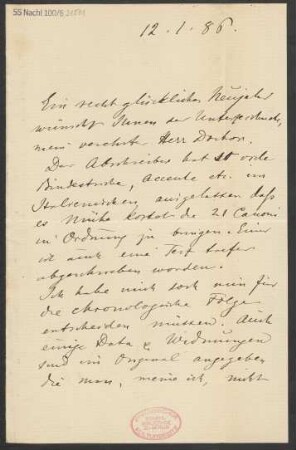 55 Nachl 100/B,
12.1.86.
Ein recht glückliches Neujahr
wünscht Ihnen der Unterzeichnete,
mein verehrter Herr Doctor.
Der Abschreiber hat so viele
Bindestriche, Accente etc. im
Italienischen ausgelassen daß
es Mühe kostet die 21 Canoni
in Ordnung zu bringen. Einer
ist auch eine
abgeschrieben worden.
Ich habe mich doch nun für
die chronologische Folge
entscheiden müssen. Auch
einige Data & Widmungen
sind im Original angegeben
die man, meine ich, nicht